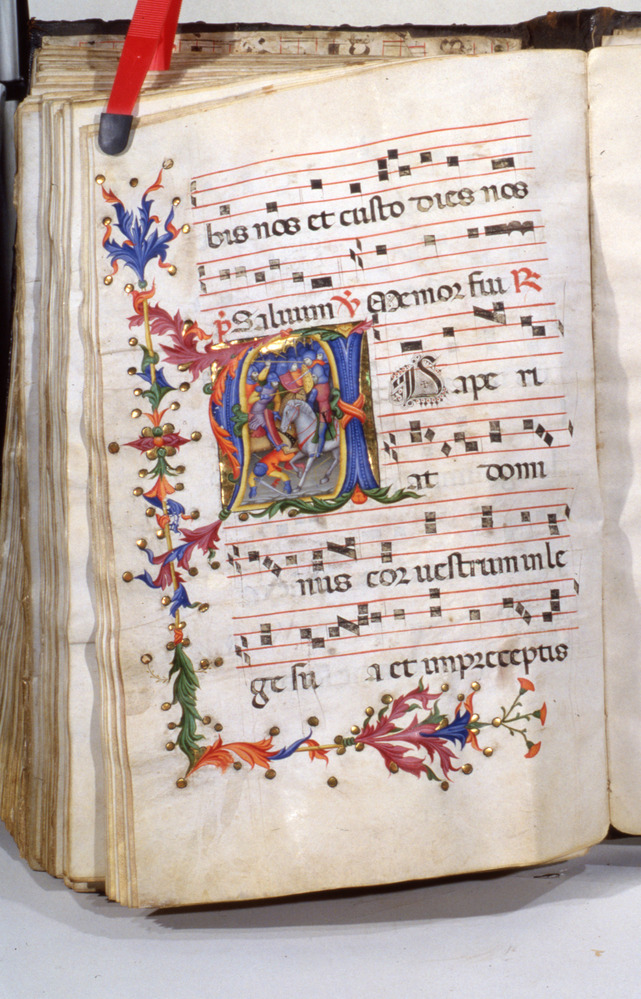 bis nos et custo dies nos
ps Salvum V Memor fui R
A Dape ri
at domi
nus cor vestrum in le
ge su a et in preceptis